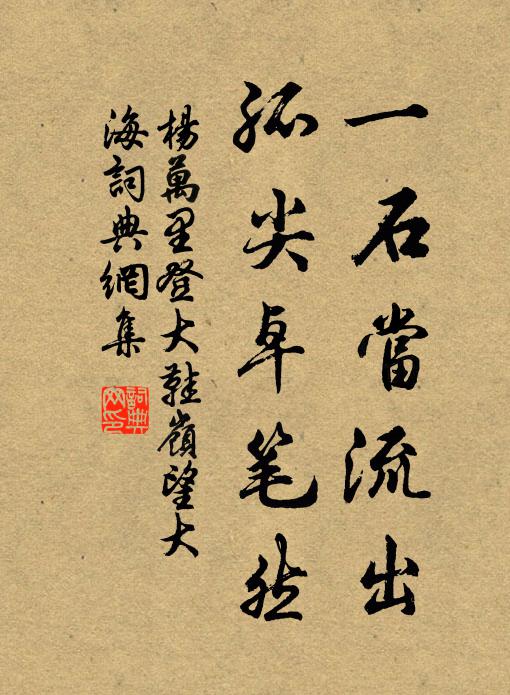 一石當流出
孤尖卓笔然
楊萬里登大鞋嶺望大
海詞典網集
詞典
网印